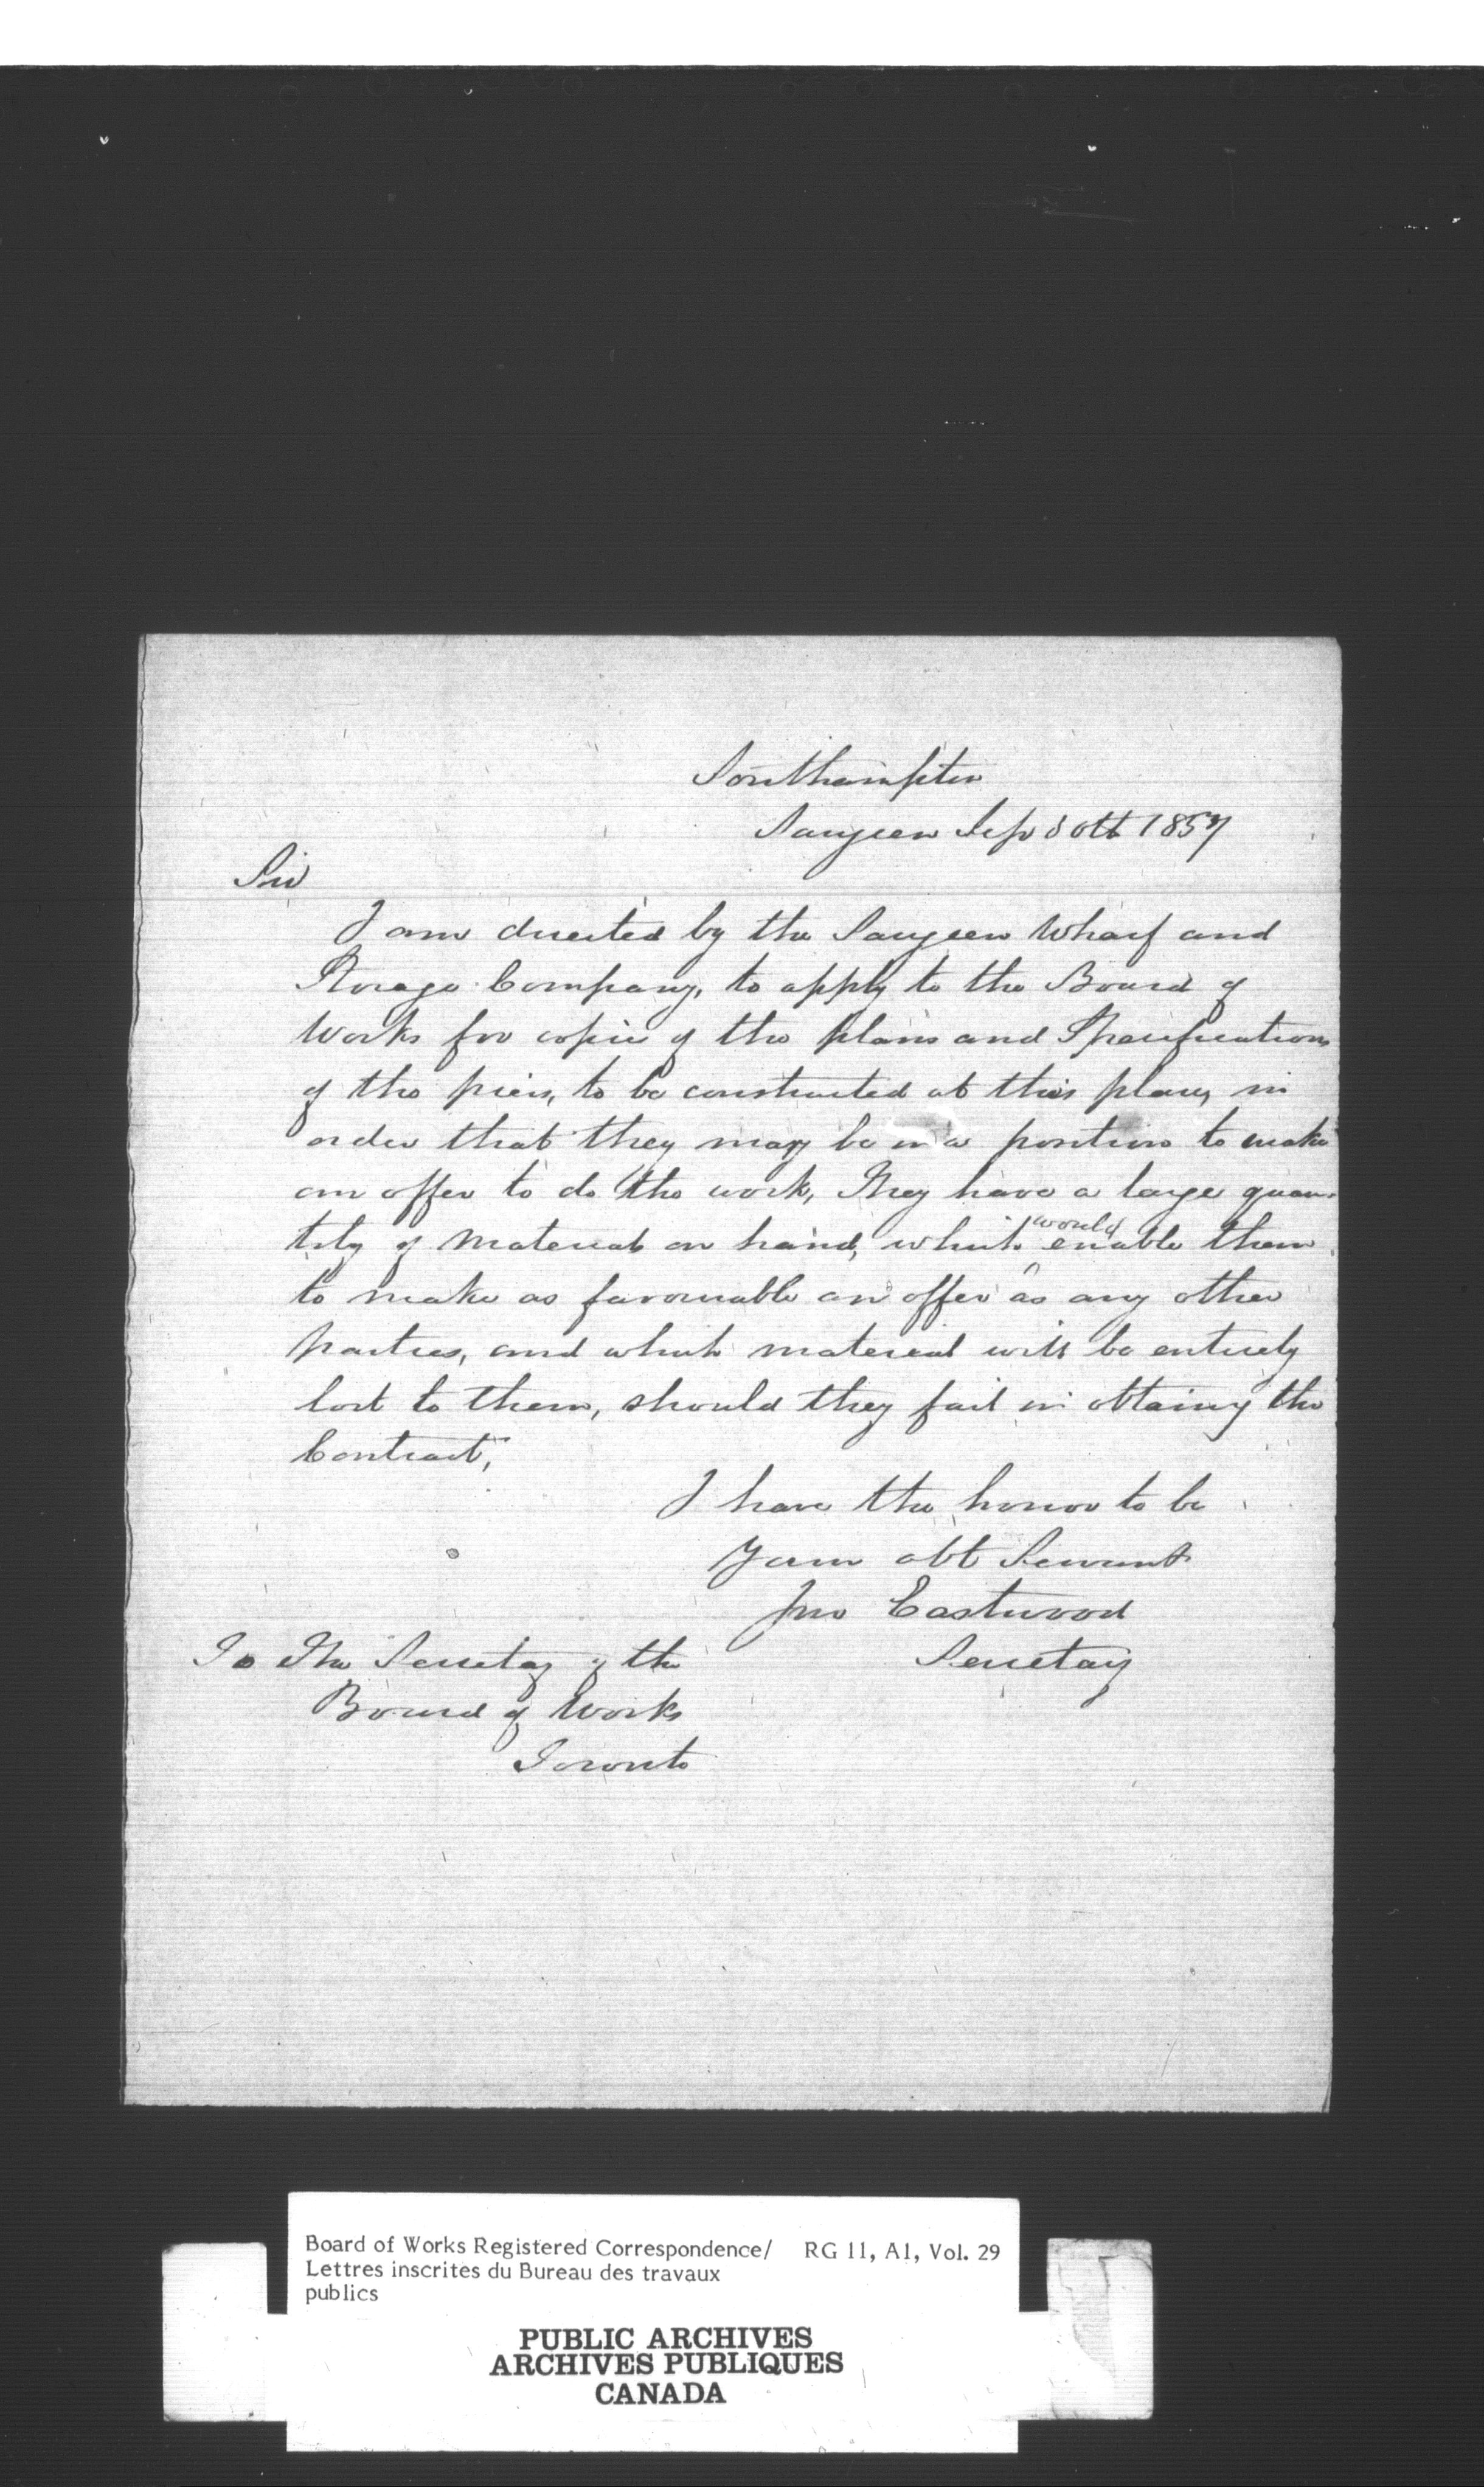 Southampton
Saugeen Sep 30th 1857
Sir
I am directed by the Saugeen Wharf and
Storage Company, to apply to the Board of
Works for copies of the plans and Specifications
of the piers, to be constructed at this place, in
order that they may be in a position to make
an offer to do the work, They have a large quan-
tity of material on hand, which would enable them
to make as favourable an offer as any other
parties, and which material will be entirely
lost to them, should they fail in obtaining the
Contract,
I have the honor to be
Your obt Servant
Jno Eastwood
Secretary
To The Secretary of the
Board of Works
Toronto
Board of Works Registered Correspondence/ RG 11, A1, Vol. 29
Lettres inscrites du Bureau des travaux
publics
PUBLIC ARCHIVES
ARCHIVES PUBLIQUES
CANADA